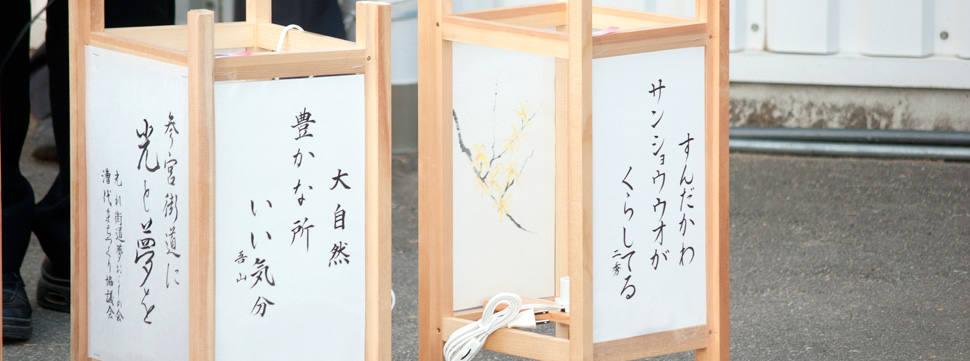 参宮街道に
光と夢を
光れ街道夢おこしの会
漕代まちづくり協議会
大自然
豊かな所
いい気分
吾山
すんだかわ
サンショウウオが
くらしてる
三秀